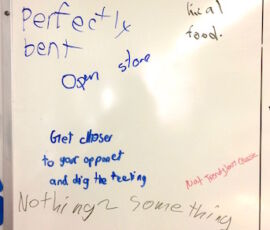 Perfectly
bent
local
food.
Open store
Get closer
to your opponet
and dig the feeling
Nothing 2 something
Not